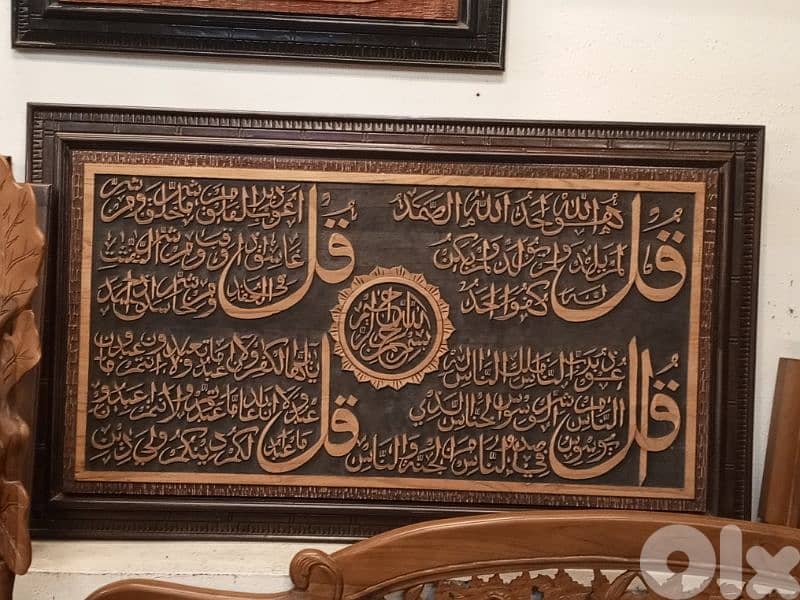 قل هو الله احد الله الصمد
لم يلد ولم يولد ولم يكن
له كفوا احد
قل اعوذ برب الفلق من شر ما خلق ومن شر
غاسق اذا وقب ومن شر النفثت
في العقد ومن شر حاسد اذا حسد
بسم الله الرحمن الرحيم
قل اعوذ برب الناس ملك الناس اله
الناس من شر الوسواس الخناس الذي
يوسوس في صدور الناس من الجنة والناس
قل يايها الكفرون لا اعبد ما تعبدون ولا انتم عبدون ما
اعبد ولا انا عابد ما عبدتم ولا انتم عبدون
ما اعبد لكم دينكم ولي دين
olx